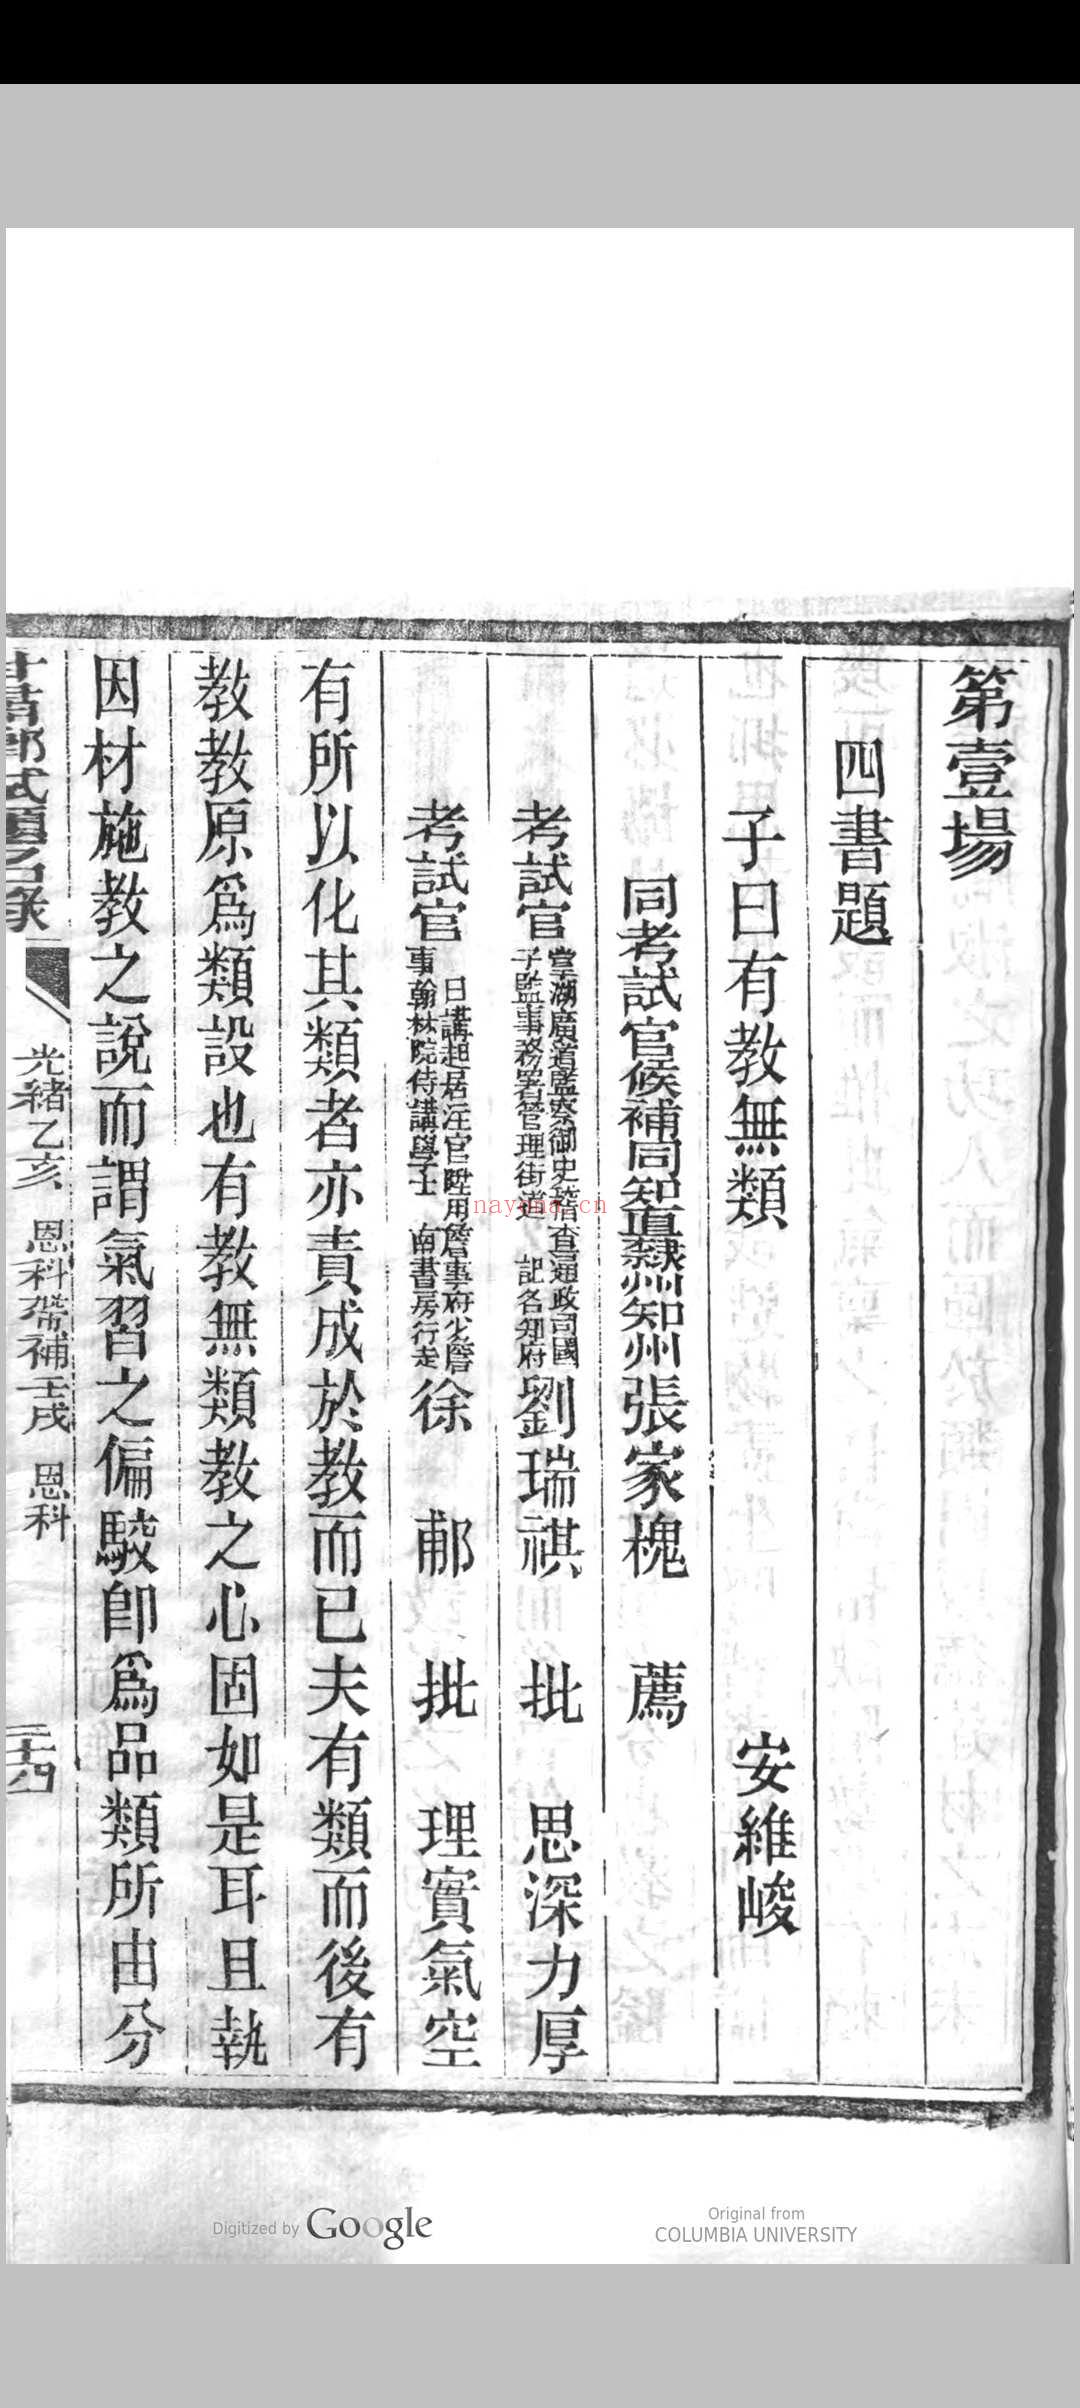 第壹場
四書題
子曰有教無類 安維峻
同考試官候補同知直隸州知州張家槐 薦
考試官掌湖廣道監察御史稽查通政司國子監事務署管理街道 記名知府劉瑞祺 批 思深力厚
考試官日講起居注官陞用詹事府少詹事翰林院侍講學士 南書房行走徐 郙 批 理實氣空
有所以化其類者亦責成於教而已夫有類而後有
教教原爲類設也有教無類教之心固如是耳且執
因材施教之說而謂氣習之偏駮卽爲品類所由分
甘肅鄉試題名錄 光緒乙亥 恩科帶補壬戌 恩科 三十四
nayona.cn
Digitized by Google
Original from
COLUMBIA UNIVERSITY